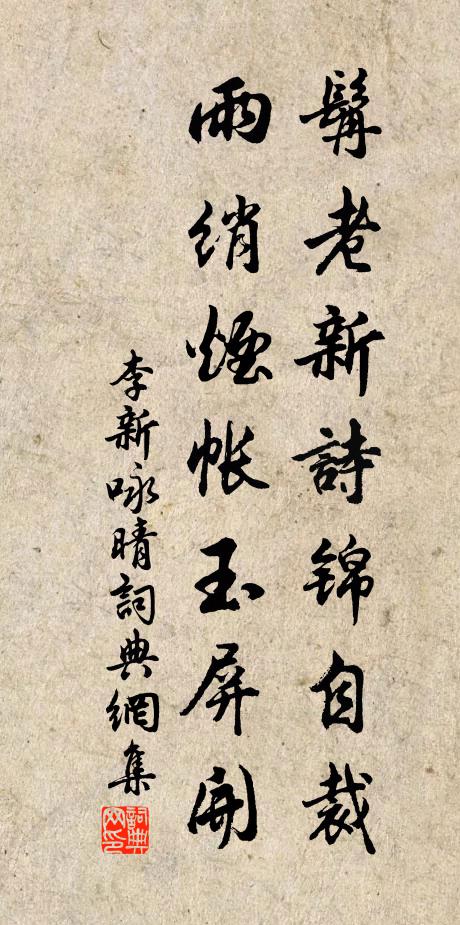 髯老新詩錦自裁
雨綃煙帳玉屏開
李新咏晴詞典網集
詞典网印